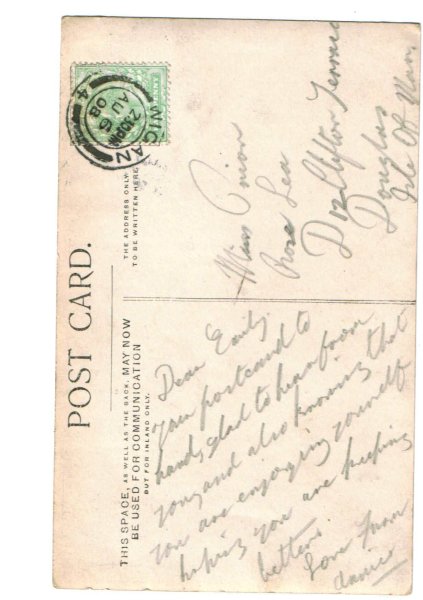 POST CARD.
THIS SPACE, AS WELL AS THE BACK, MAY NOW
BE USED FOR COMMUNICATION
BUT FOR INLAND ONLY.
THE ADDRESS ONLY
TO BE WRITTEN HERE
WIGAN
2.30PM
AU 6
08
4
PENNY
Dear Emily
your postcard to
hand glad to hear from
you and also knowing that
you are enjoying yourself
hoping you are keeping
better
Love from
Miss
Rose Lea
Clifton Terrace
Douglas
Isle Of Man